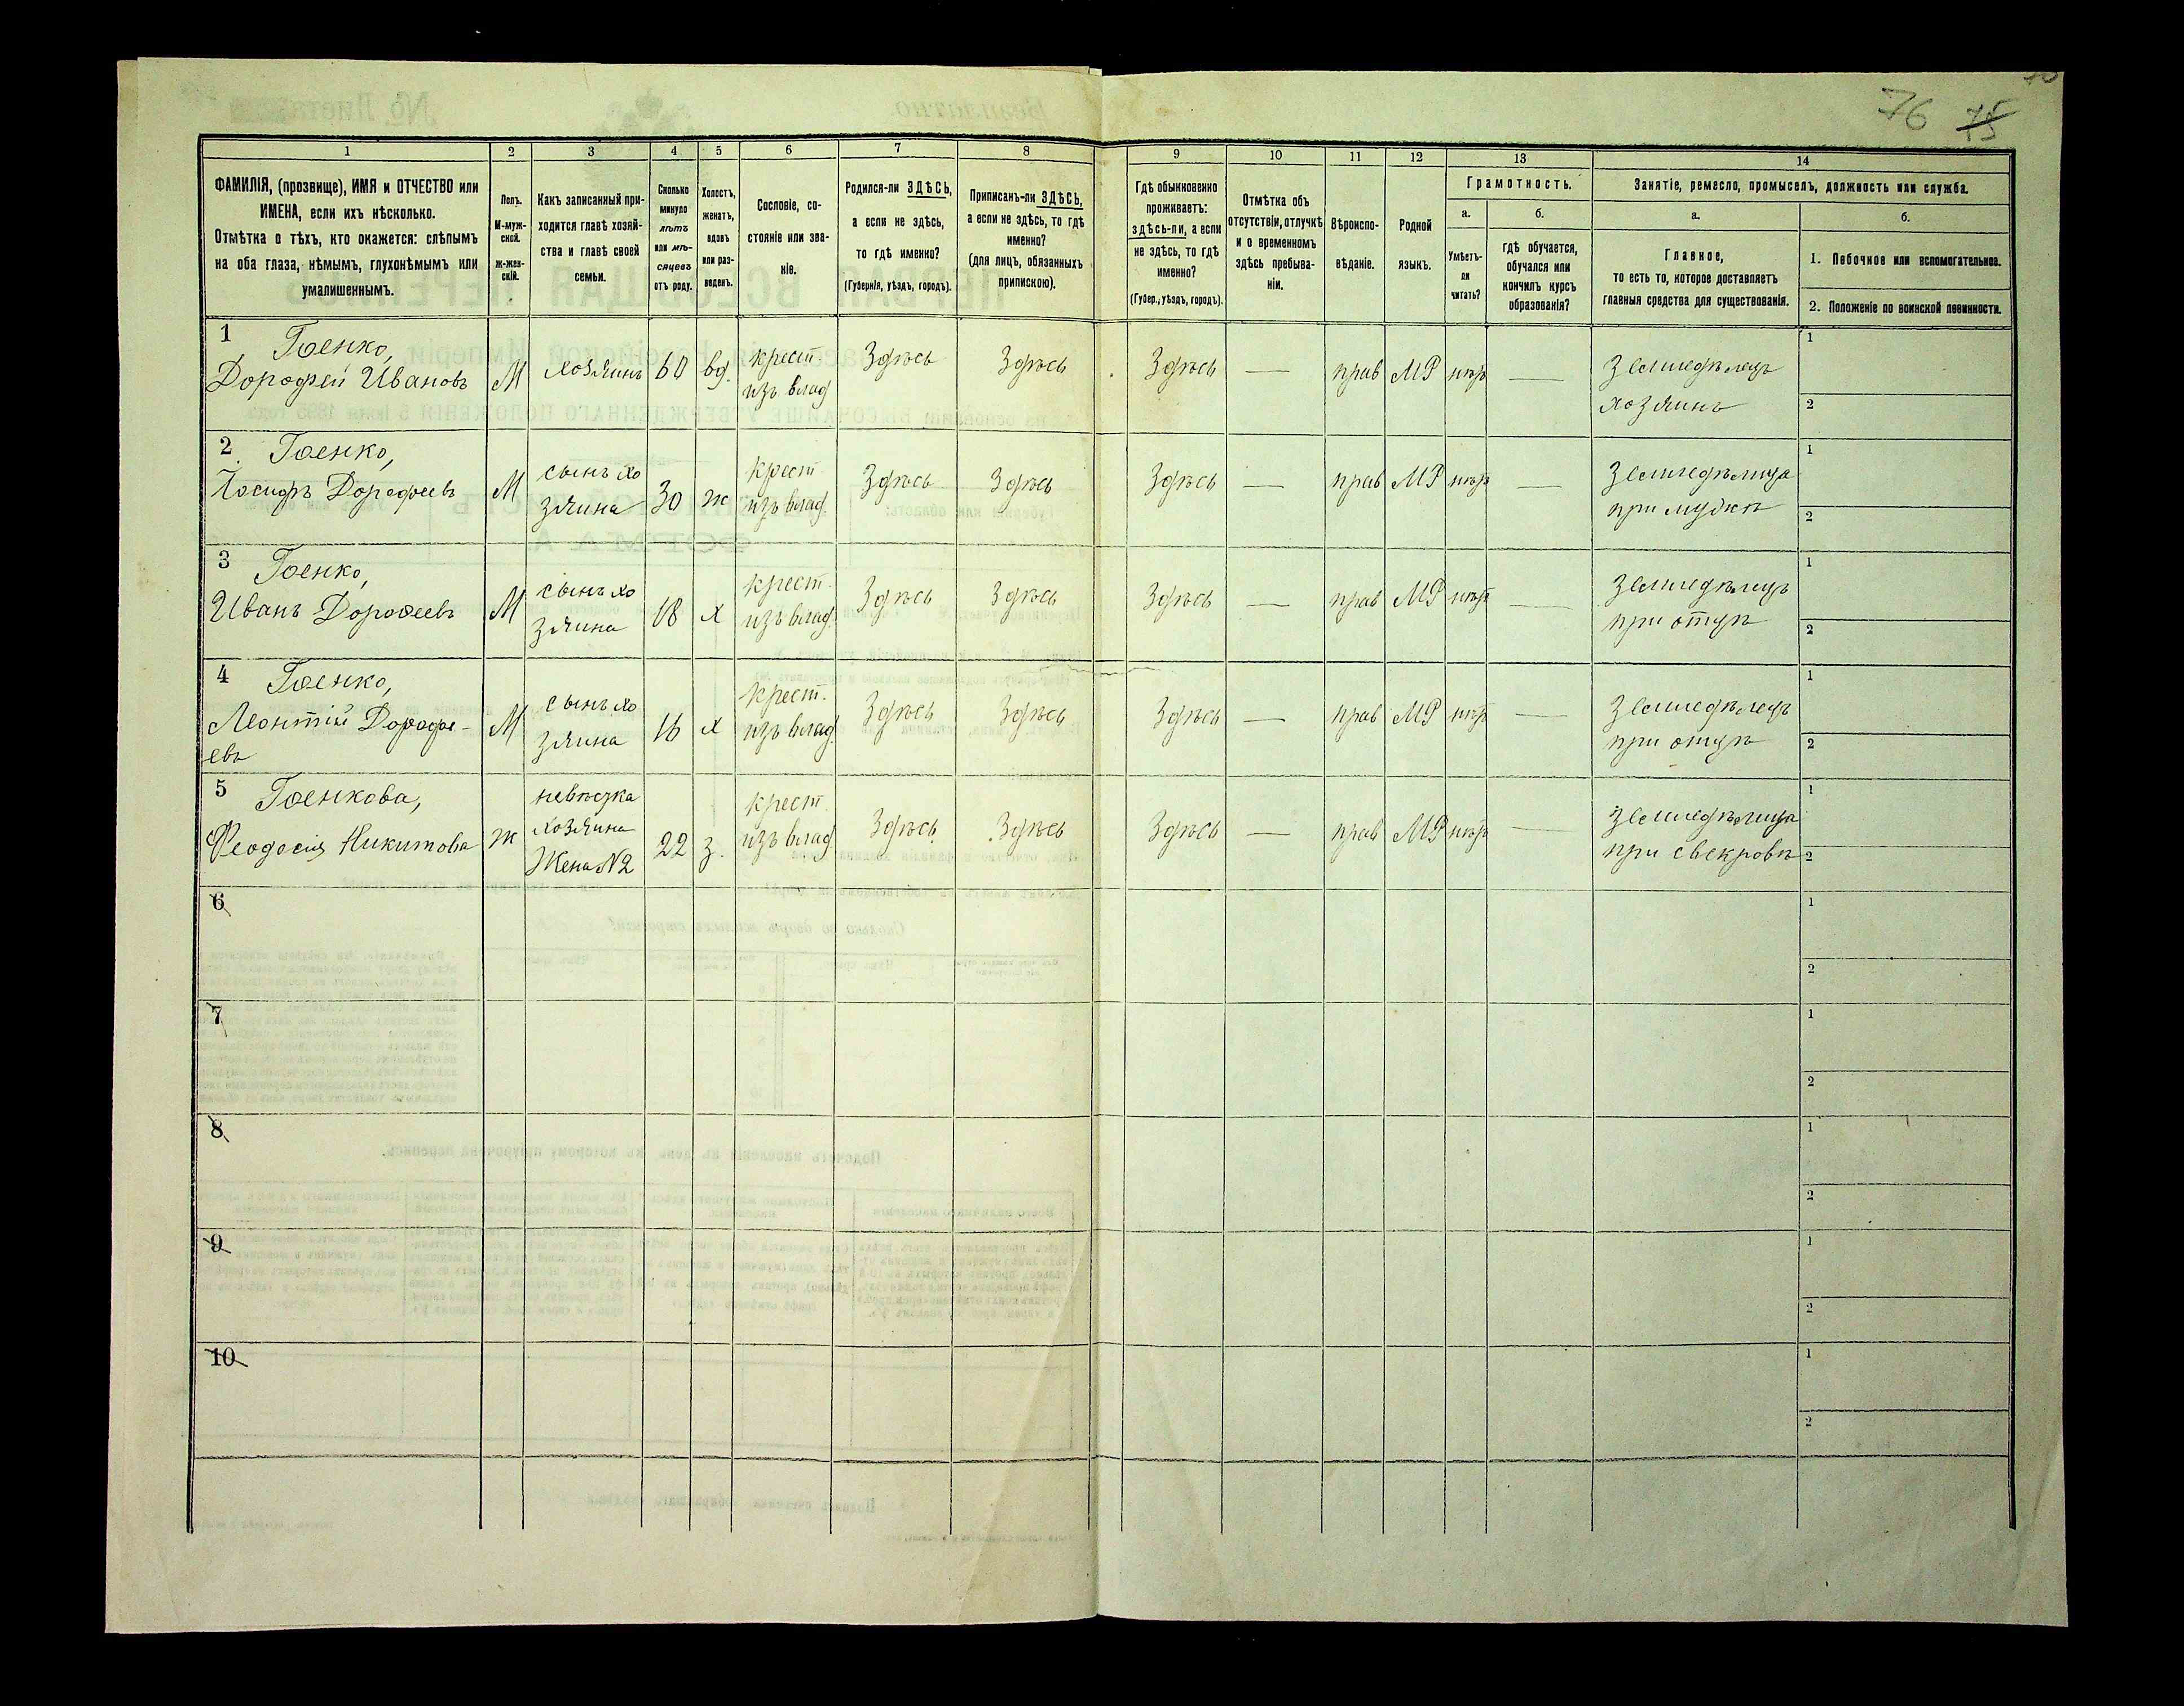 76 75
1 2 3 4 5 6 7 8 9 10 11 12 13 14
ФАМИЛІЯ, (прозвище), ИМЯ и ОТЧЕСТВО или
ИМЕНА, если ихъ нѣсколько.
Отмѣтка о тѣхъ, кто окажется: слѣпымъ
на оба глаза, нѣмымъ, глухонѣмымъ или
умалишеннымъ.
Полъ.
М-муж-
ской.
ж-жен-
скій.
Какъ записанный при-
ходится главѣ хозяй-
ства и главѣ своей
семьи.
Сколько
минуло
лѣтъ
или мѣ-
сяцевъ
отъ роду.
Холостъ,
женатъ,
вдовъ
или раз-
веденъ.
Сословіе, со-
стояніе или зва-
ніе.
Родился-ли ЗДѢСЬ,
а если не здѣсь,
то гдѣ именно?
(Губернія, уѣздъ, городъ).
Приписанъ-ли ЗДѢСЬ,
а если не здѣсь, то гдѣ
именно?
(для лицъ, обязанныхъ
припискою).
Гдѣ обыкновенно
проживаетъ:
здѣсь-ли, а если
не здѣсь, то гдѣ
именно?
(Губер., уѣздъ, городъ).
Отмѣтка объ
отсутствіи, отлучкѣ
и о временномъ
здѣсь пребыва-
ніи.
Вѣроиспо-
вѣданіе.
Родной
языкъ.
Грамотность.
а.
Умѣетъ-
ли
читать?
б.
гдѣ обучается,
обучался или
кончилъ курсъ
образованія?
Занятіе, ремесло, промыселъ, должность или служба.
а.
Главное,
то есть то, которое доставляетъ
главныя средства для существованія.
б.
1. Побочное или вспомогательное.
2. Положеніе по воинской повинности.
1 Гоенко,
Дорофей Ивановъ М хозяинъ 60 вд. крест. изъ влад Здѣсь Здѣсь Здѣсь — прав МР нѣтъ — Земледѣлецъ
хозяинъ
1
2
2 Гоенко,
Дорофеевъ М сынъ хо
зяина 30 ж крест изъ влад. Здѣсь Здѣсь Здѣсь — прав МР нѣтъ — Земледѣлица
при мужѣ
1
2
3 Гоенко,
Иванъ Дорофеевъ М сынъ хо
зяина 18 х крест. изъ влад. Здѣсь Здѣсь Здѣсь — прав МР нѣтъ — Земледѣлецъ
при отцѣ
1
2
4 Гоенко,
Леонтій Дорофе-
евъ М сынъ хо
зяина 16 х крест. изъ влад. Здѣсь Здѣсь Здѣсь — прав МР нѣтъ — Земледѣлецъ
при отцѣ
1
2
5 Гоенкова,
Феодосія Никитова ж невѣстка
хозяина
Жена N2 22 з. крест. изъ влад Здѣсь Здѣсь Здѣсь — прав МР нѣтъ — Земледѣлица
при свекровѣ
1
2
6
1
2
7
1
2
8
1
2
9
1
2
10
1
2